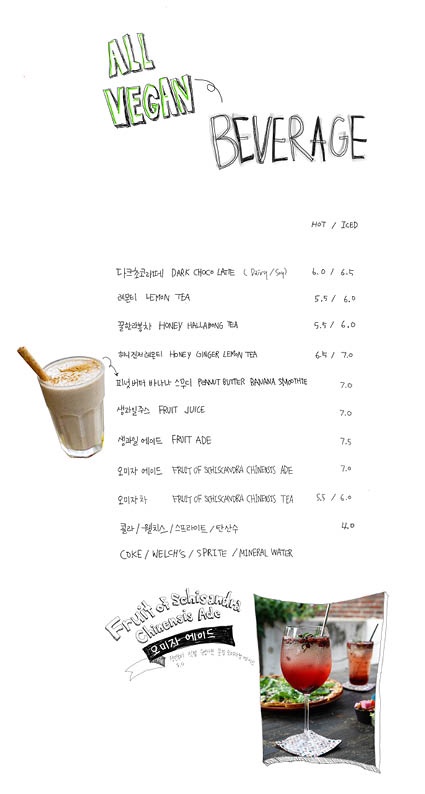 ALL
VEGAN
BEVERAGE
HOT / ICED
다크초코라떼 DARK CHOCO LATTE (Dairy/Soy) 6.0 / 6.5
레몬티 LEMON TEA 5.5 / 6.0
꿀한라봉차 HONEY HALLABONG TEA 5.5 / 6.0
허니진저레몬티 HONEY GINGER LEMON TEA 6.5 / 7.0
피넛버터 바나나 스무디 PEANUT BUTTER BANANA SMOOTHIE 7.0
생과일주스 FRUIT JUICE 7.0
생과일 에이드 FRUIT ADE 7.5
오미자 에이드 FRUIT OF SCHISCANDRA CHINENSIS ADE 7.0
오미자 차 FRUIT OF SCHISCANDRA CHINENSIS TEA 5.5 / 6.0
콜라/웰치스/스프라이트/탄산수 4.0
COKE / WELCH'S / SPRITE / MINERAL WATER
Fruit of Schisandra
Chinensis Ade
오미자 에이드